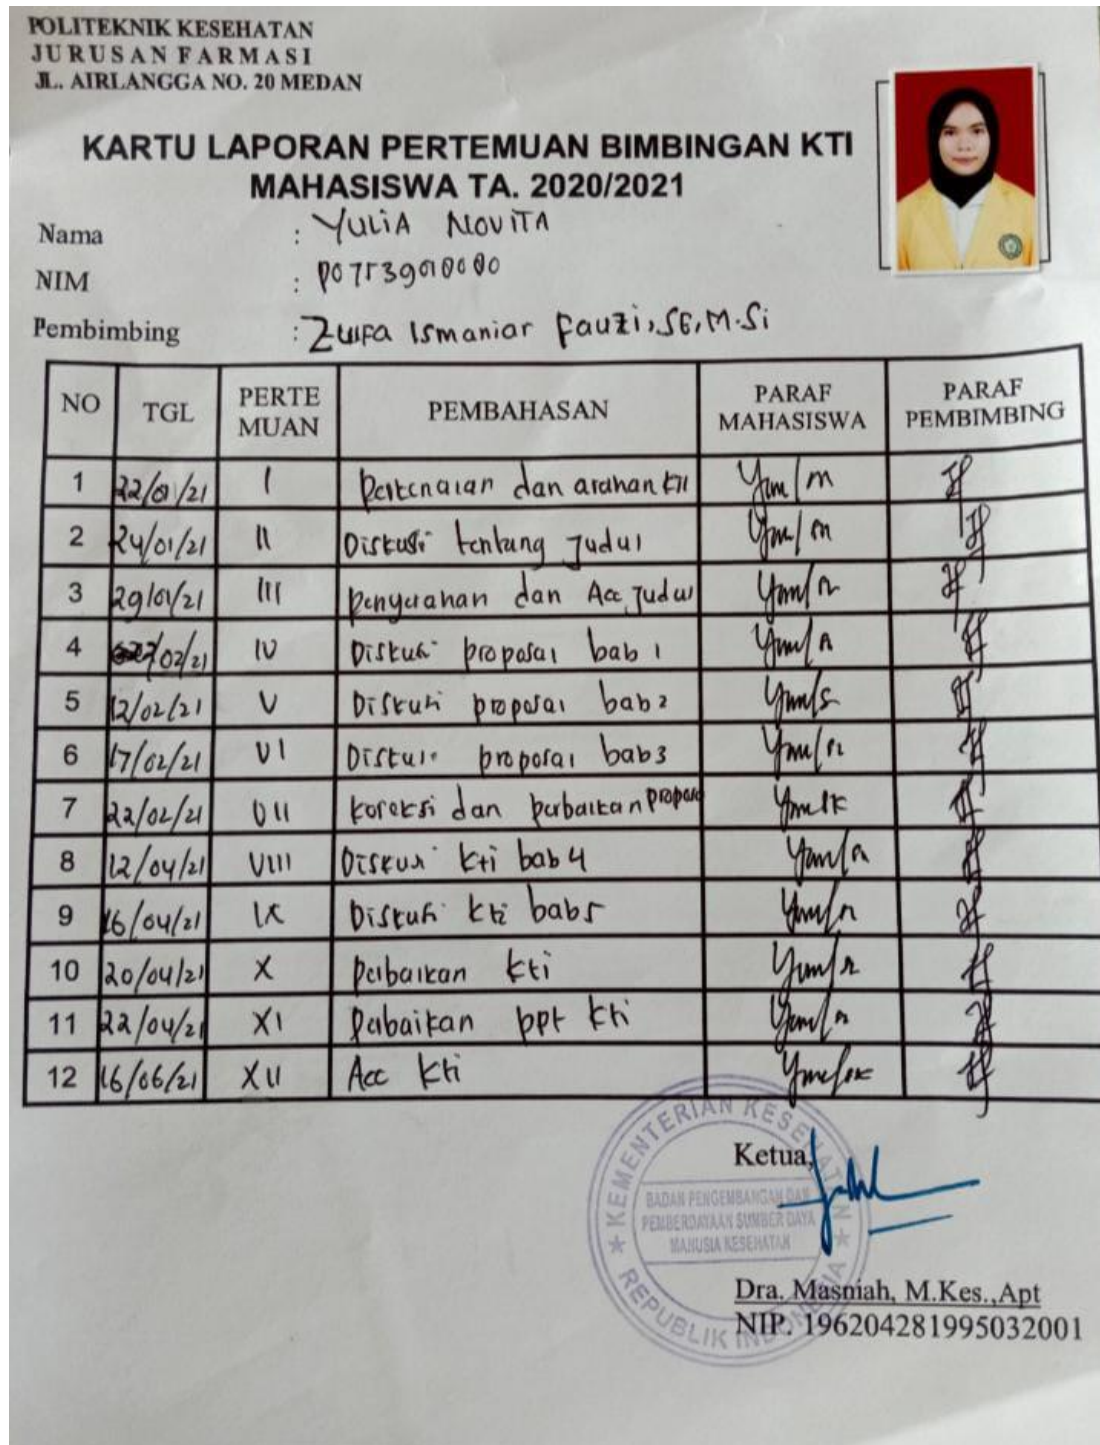 POLITEKNIK KESEHATAN
JURUSAN FARMASI
JL. AIRLANGGA NO. 20 MEDAN
KARTU LAPORAN PERTEMUAN BIMBINGAN KTI
MAHASISWA TA. 2020/2021
Nama : YULIA NOVITA
NIM :
Pembimbing : Zulfa Ismaniar Fauzi, SE, M.Si
NO TGL PERTE MUAN PEMBAHASAN PARAF MAHASISWA PARAF PEMBIMBING
1 22/01/21 I Perkenalan dan arahan kti
2 24/01/21 II Diskusi tentang Judul
3 29/01/21 III Penyerahan dan Acc Judul
4 /02/21 IV Diskusi proposal bab 1
5 12/02/21 V Diskusi proposal bab 2
6 17/02/21 VI Diskusi proposal bab 3
7 22/02/21 VII koreksi dan perbaikan proposal
8 12/04/21 VIII Diskusi kti bab 4
9 16/04/21 IX Diskusi kti bab 5
10 20/04/21 X Perbaikan kti
11 22/04/21 XI Perbaikan ppt kti
12 16/06/21 XII Acc kti
KEMENTERIAN KESEHATAN
BADAN PENGEMBANGAN DAN
PEMBERDAYAAN SUMBER DAYA
MANUSIA KESEHATAN
REPUBLIK INDONESIA
Ketua,
Dra. Masniah, M.Kes.,Apt
NIP. 196204281995032001